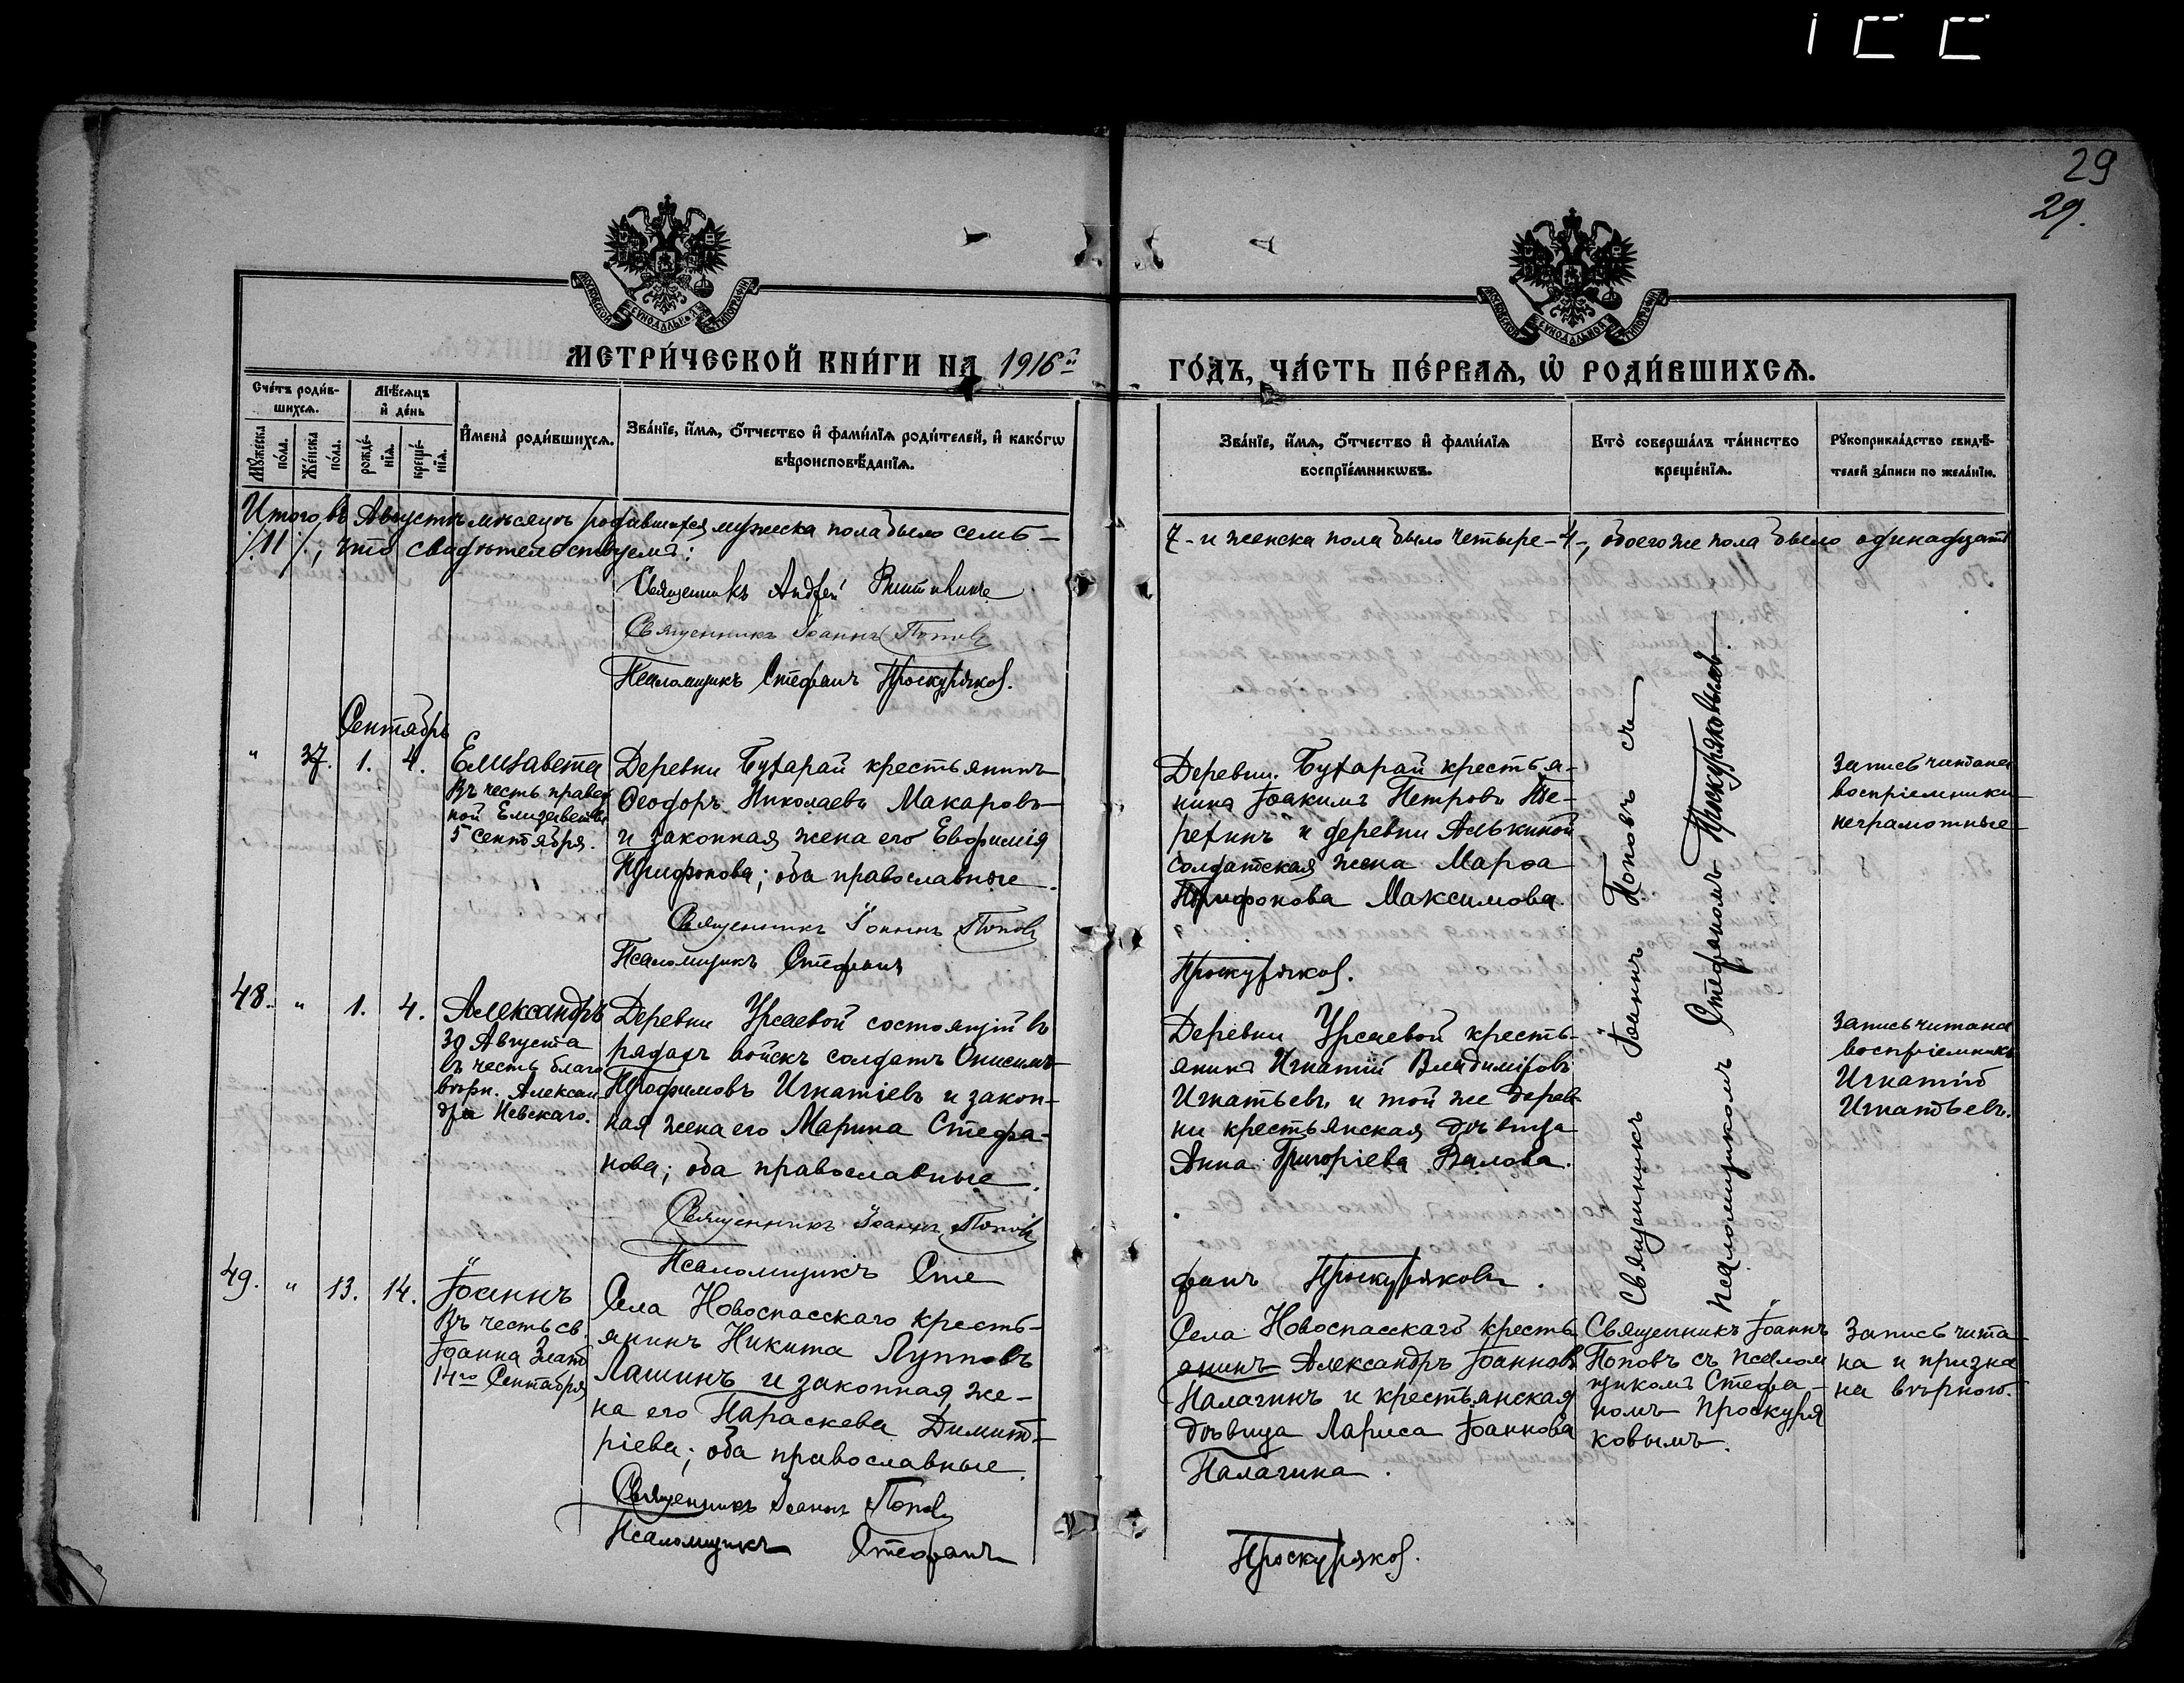 29
29.
МОСКОВСКОЙ СѴНОДАЛЬНОЙ ТИПОГРАФІИ
МОСКОВСКОЙ СѴНОДАЛЬНОЙ ТИПОГРАФІИ
МЕТРИ́ЧЕСКОЙ КНИ́ГИ НА 1916й
ГО́ДЪ, ЧА́СТЬ ПЕ́РВАЯ, Ѡ҆ РОДИ́ВШИХСЯ.
Сче́тъ роди́в-
шихся.
Мѣ́сяцъ
и҆ де́нь
Мꙋ́жеска
по́ла.
Же́нска
по́ла.
рожде́-
нїѧ.
креще́-
нїѧ.
И҆мена̀ роди́вшихся.
Зва́нїе, и҆́мя, ѻ҆́тчество и҆ фами́лїя роди́телей, и҆ како́гѡ
вѣроисповѣ́данїя.
Зва́нїе, и҆́мя, ѻ҆́тчество и҆ фами́лїя
воспрїе́мникѡвъ.
Кто̀ соверша́лъ та́инство
креще́нїя.
Рꙋкоприкла́дство свидѣ́-
телей за́писи по жела́нїю.
Итого въ Августѣ мѣсяцѣ родившихся мужеска пола было семь —
7 - и женска пола было четыре - 4 -, обоего же пола было одинадцать
/11/, что свидѣтельствуемъ:
Священникъ Андрей
Священникъ Іоаннъ Поповъ
Псаломщикъ Стефанъ Проскуряковъ.
Сентябрь
" 37. 1. 4.
Елизавета
Въ честь правед
ной Елизаветы
5 Сентября.
Деревни Бухарай крестьянинъ
Ѳеодоръ Николаевъ Макаровъ
и законная жена его Евфимія
Трифонова; оба православные.
Священникъ Іоаннъ Поповъ
Псаломщикъ Стефанъ
Деревни Бухарай крестья-
нинъ Іоакимъ Петровъ Те-
рехинъ и деревни Алькиной
солдатская жена Марѳа
Трифонова Максимова.
Проскуряковъ.
Священникъ Іоаннъ Поповъ съ
Псаломщикомъ Стефаномъ Проскуряковымъ
Запись читана
воспріемники
неграмотные
48. " 1. 4.
Александръ
30 Августа
въ честь благо
вѣрн. Алексан
дра Невскаго.
Деревни Урсаевой состоящій въ
рядахъ войскъ солдатъ Онисимъ
Трофимовъ Игнатіевъ и закон-
ная жена его Марина Стефа-
нова; оба православные.
Священникъ Іоаннъ Поповъ
Псаломщикъ Сте
Деревни Урсаевой кресть-
янинъ Игнатій Владиміровъ
Игнатьевъ и той же дерев
ни крестьянская дѣвица
Анна Григоріева Валова.
фанъ Проскуряковъ.
Запись читана
воспріемникъ
Игнатій
Игнатьевъ.
49. " 13. 14.
Іоаннъ
Въ честь св.
Іоанна Злат
14го Сентября
Села Новоспасскаго кресть-
янинъ Никита Лупповъ
Лашинъ и законная же-
на его Параскева Димит-
ріева; оба православные.
Священникъ Іоаннъ Поповъ
Псаломщикъ Стефанъ
Села Новоспасскаго кресть
янинъ Александръ Іоанновъ
Палагинъ и крестьянская
дѣвица Лариса Іоаннова
Палагина.
Проскуряковъ.
Священникъ Іоаннъ
Поповъ съ псалом
щикомъ Стефа-
номъ Проскуря
ковымъ.
Запись чита
на и призна
на вѣрною.